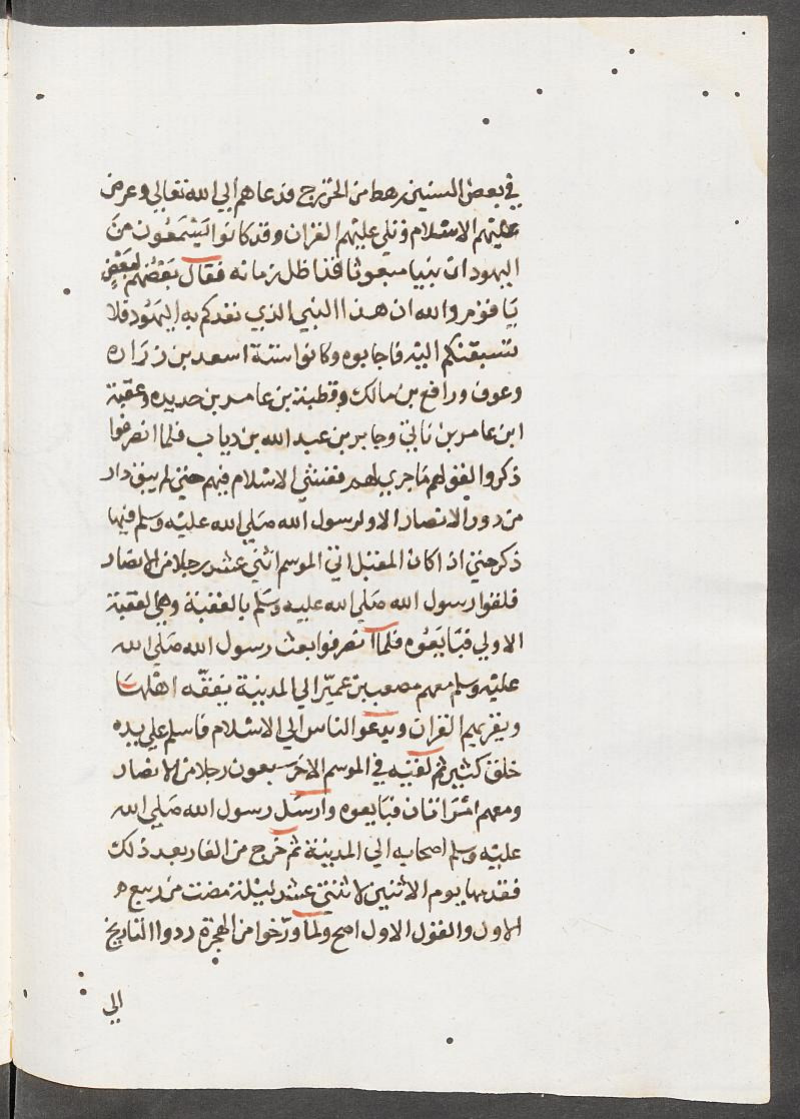 في بعض السنين رهط من الخزرج فدعاهم الي الله تعالي وعرض
عليهم الاسلام وتلي عليهم القران وقد كانوا يسمعون من
اليهود ان نبيا مبعوثا قد اظل زمانه فقال بعضهم لبعض
يا قوم والله ان هذا النبي الذي تعدكم به اليهود فلا
تسبقنكم اليه فاجابوه وكانوا ستة اسعد بن زراره
وعوف ورافع بن مالك وقطبة بن عامر بن حديده وعقبة
ابن عامر بن نابي وجابر بن عبد الله بن دياب فلما انصرفوا
ذكروا لقولهم ما جري لهم ففشي الاسلام فيهم حتي لم يبق دار
من دور الانصار الا ولرسول الله صلي الله عليه وسلم فيها
ذكر حتي اذا كان المقبل اتي الموسم اثني عشر رجلا من الانصار
فلقوا رسول الله صلي الله عليه وسلم بالعقبة وهي العقبة
الاولي فبايعوه فلما انصرفوا بعث رسول الله صلي الله
عليه وسلم معهم مصعب بن عمير الي المدينة يفقه اهلها
ويقريهم القران ويدعو الناس الي الاسلام فاسلم علي يده
خلق كثير ثم لقيه في الموسم الاخر سبعون رجلا من الانصار
ومعهم امراتان فبايعوه وارسل رسول الله صلي الله
عليه وسلم اصحابه الي المدينة ثم خرج من الغار بعد ذلك
فقدمها يوم الاثنين لاثنتي عشر ليلة مضت من ربيع
الاول والقول الاول اصح ولما ورخوا من الهجرة ردوا التاريخ
الي